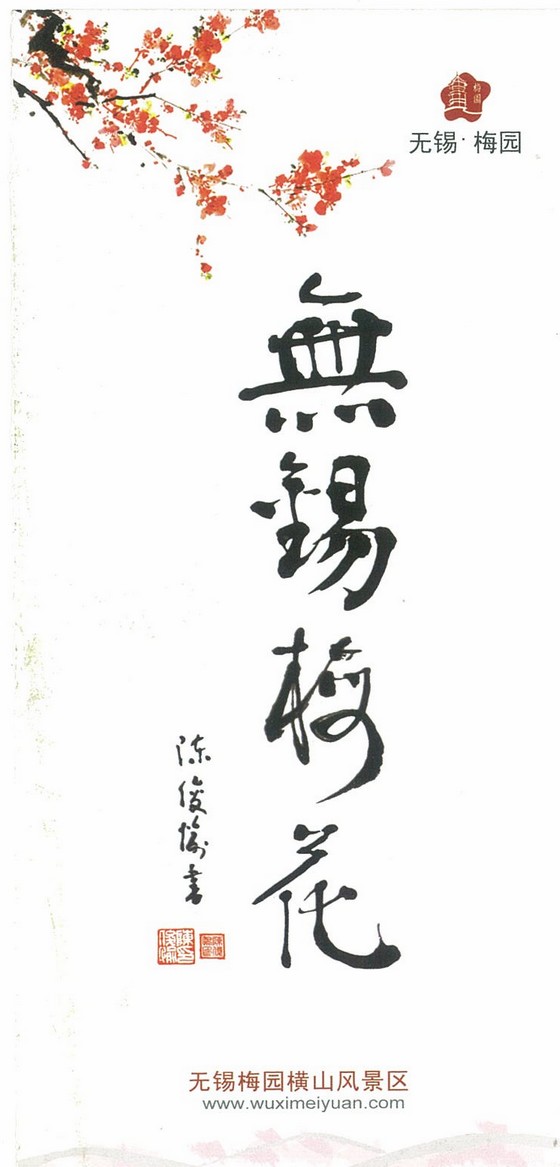 梅园
无锡·梅园
無錫梅花
陈俊愉書
无锡梅园横山风景区
www.wuximeiyuan.com